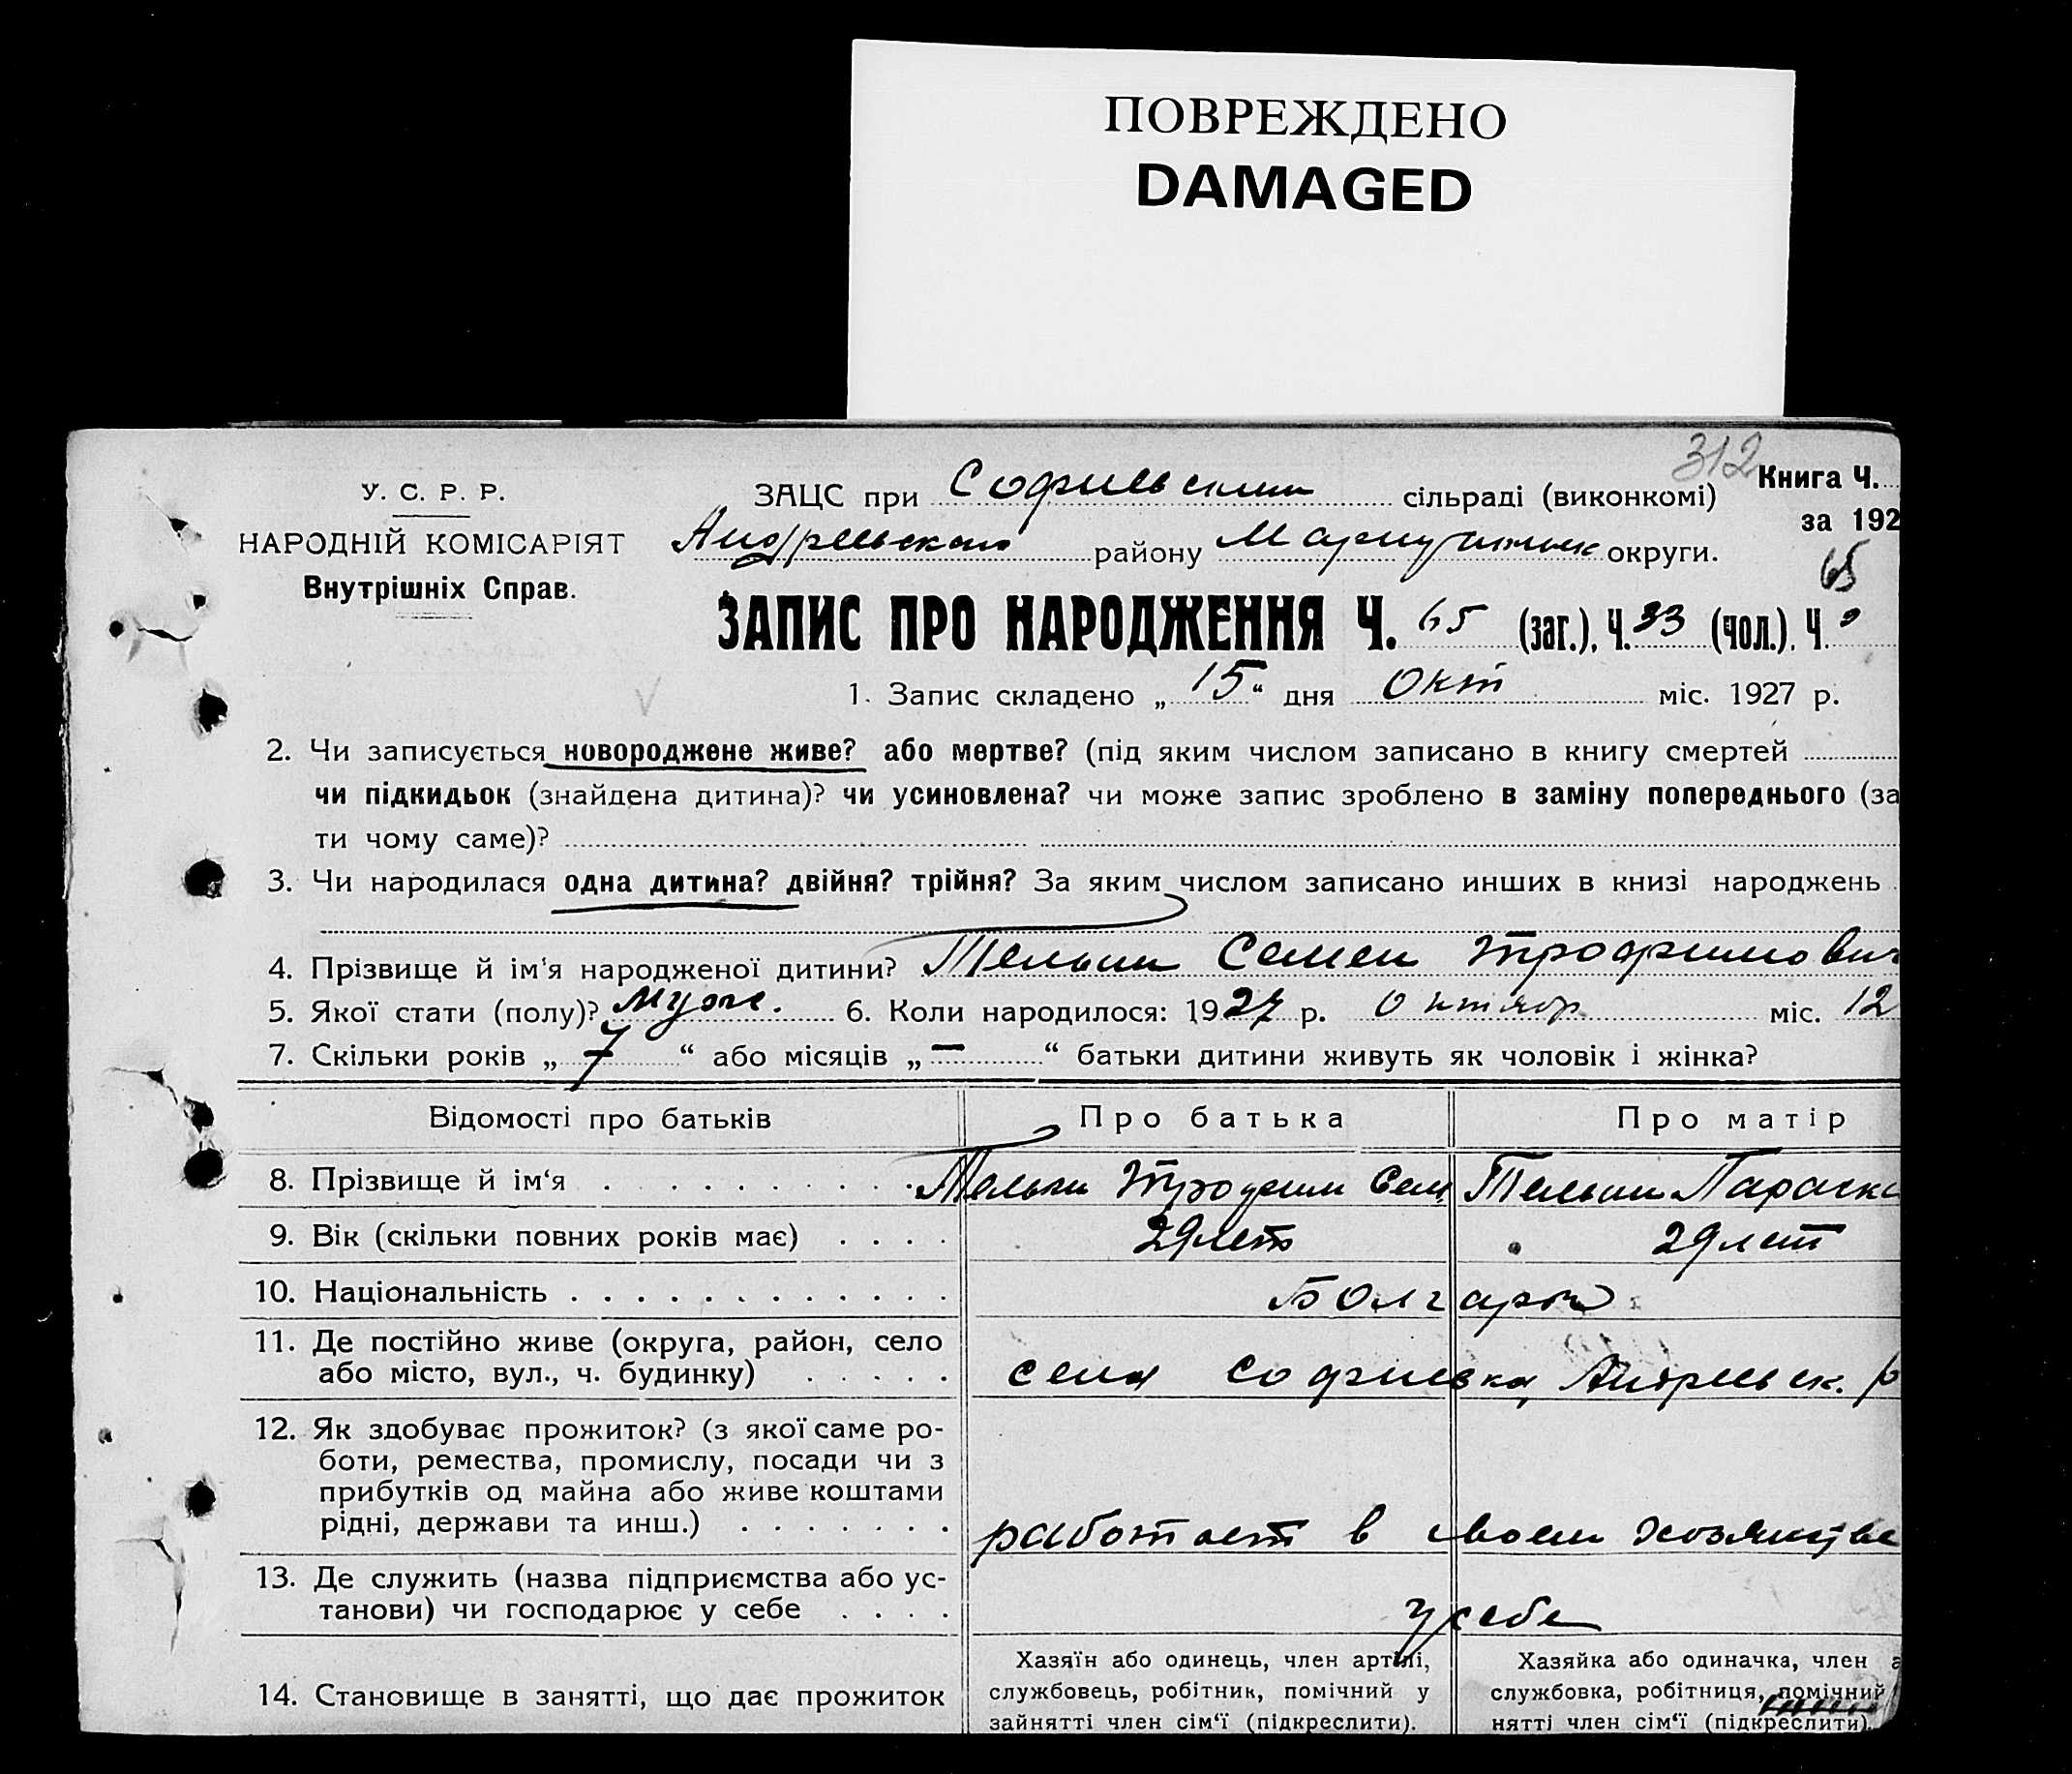 ПОВРЕЖДЕНО
DAMAGED
312
У. С. Р. Р.
НАРОДНІЙ КОМІСАРІЯТ
Внутрішніх Справ.
ЗАЦС при Софиевским сільраді (виконкомі)
Книга Ч.
за 192
Андреевского району округи.
65
ЗАПИС ПРО НАРОДЖЕННЯ Ч. 65 (заг.), Ч. 33 (чол.), Ч.
1. Запис складено „ 15 “ дня Окт міс. 1927 р.
2. Чи записується новороджене живе? або мертве? (під яким числом записано в книгу смертей
чи підкидьок (знайдена дитина)? чи усиновлена? чи може запис зроблено в заміну попереднього (за
ти чому саме)?
3. Чи народилася одна дитина? двійня? трійня? За яким числом записано инших в книзі народжень
4. Прізвище й ім'я народженої дитини? Семен Трофимович
5. Якої стати (полу)? муж. 6. Коли народилося: 1927 р. Октябр міс. 12
7. Скільки років „ 7 “ або місяців „ — “ батьки дитини живуть як чоловік і жінка?
Відомості про батьків Про батька Про матір
8. Прізвище й ім‘я Трофим Сем Параска
9. Вік (скільки повних років має) 29 лет 29 лет
10. Національність Болгары
11. Де постійно живе (округа, район, село
або місто, вул., ч. будинку) село Софиевка Андреевск. р
12. Як здобуває прожиток? (з якої саме ро-
боти, ремества, промислу, посади чи з
прибутків од майна або живе коштами
рідні, держави та инш.) работает в своем хозяйстве
13. Де служить (назва підприємства або ус-
танови) чи господарює у себе у себе
14. Становище в занятті, що дає прожиток
Хазяїн або одинець, член артілі,
службовець, робітник, помічний у
зайнятті член сім‘ї (підкреслити).
Хазяйка або одиначка, член а
службовка, робітниця, помічний
нятті член сім‘ї (підкреслити)